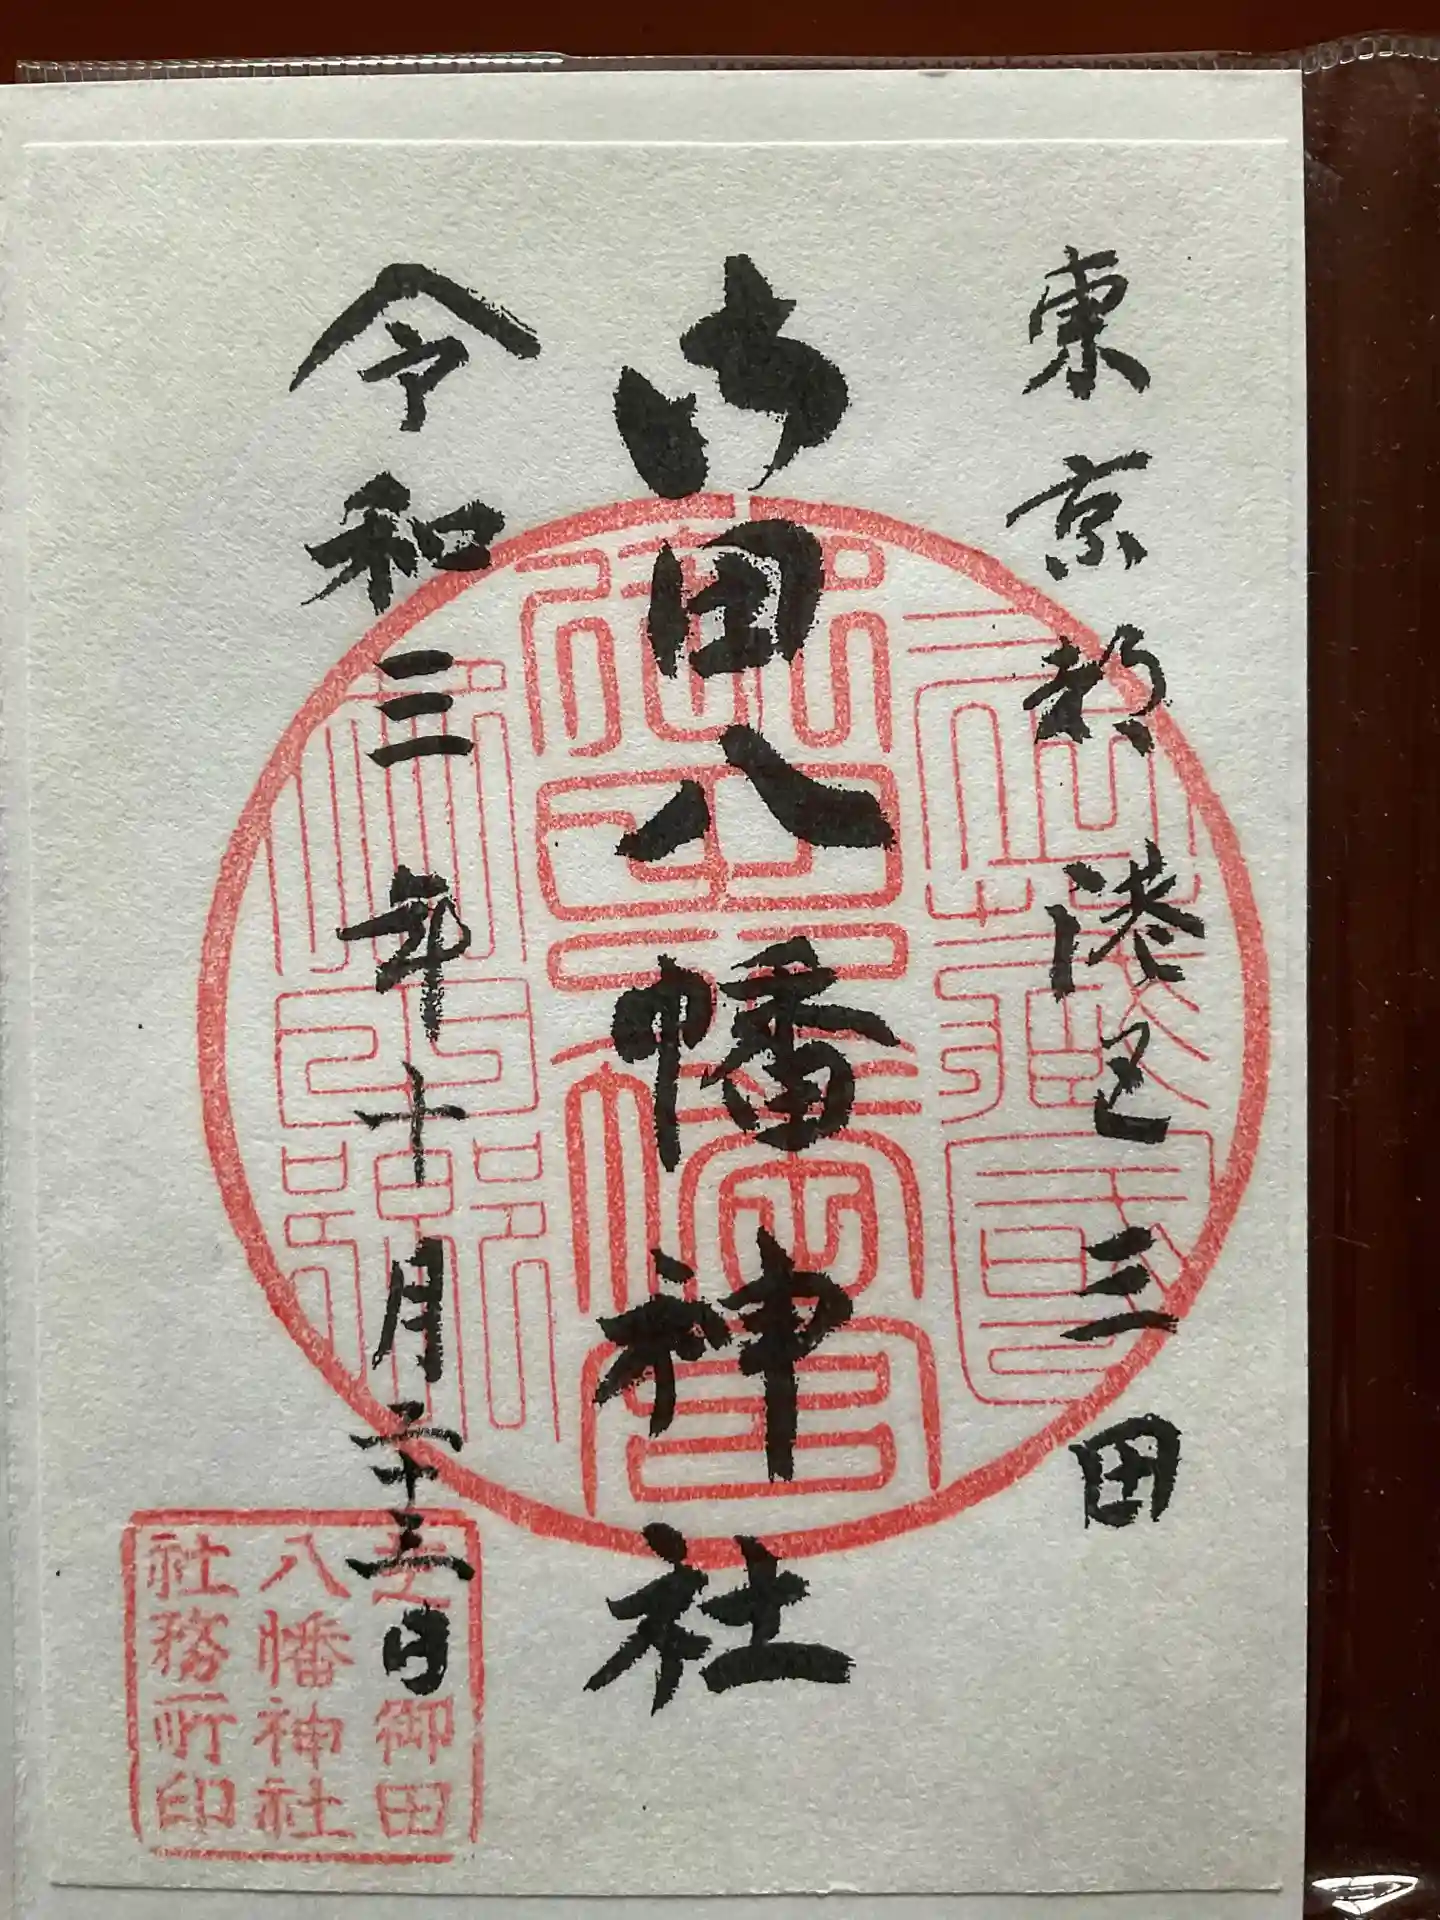 東京都港区三田
御田八幡神社
令和三年十月二十三日
芝御田
八幡神社
社務所印